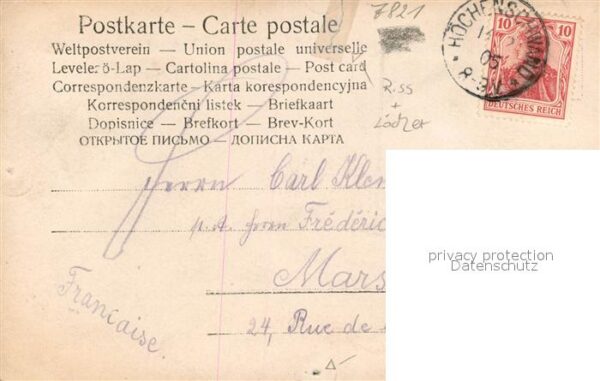 Postkarte – Carte postale
Weltpostverein — Union postale universelle
Levelező-Lap — Cartolina postale — Post card
Correspondenzkarte – Karta korespondencyjna
Korrespondenční listek – Briefkaart
Dopisnice – Brefkort – Brev-Kort
ОТКРЫТОЕ ПИСЬМО – ДОПИСНА КАРТА
7821
Riss
+
HÖCHENSCHWAND
05
10
10
DEUTSCHES REICH
Herrn Carl
p. A. Herrn
Mars
24, Rue de
Française.
privacy protection
Datenschutz